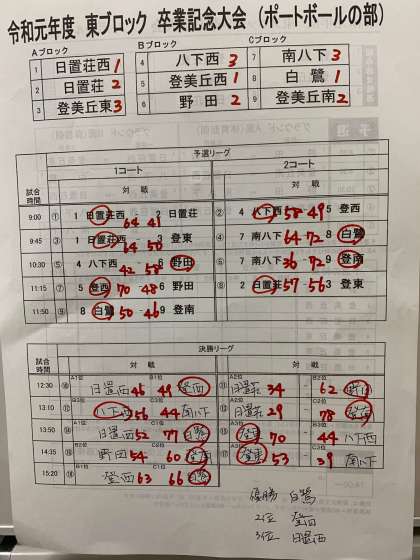 令和元年度 東ブロック 卒業記念大会（ポートボールの部）
Aブロック Bブロック Cブロック
1 日置荘西 1 4 八下西 3 7 南八下 3
2 日置荘 2 5 登美丘西 1 8 白鷺 1
3 登美丘東 3 6 野田 2 9 登美丘南 2
予選リーグ
試合時間 1コート 2コート
対戦 対戦
9:00 ① 1 日置荘西 64 41 2 日置荘 ② 4 八下西 58 49 5 登西
9:45 ③ 1 日置荘西 64 50 3 登東 ④ 7 南八下 64 72 8 白鷺
10:30 ⑤ 4 八下西 42 58 6 野田 ⑥ 7 南八下 36 72 9 登南
11:15 ⑦ 5 登西 70 48 6 野田 ⑧ 2 日置荘 57 56 3 登東
11:50 ⑨ 8 白鷺 50 46 9 登南
決勝リーグ
試合時間 対戦 対戦
12:30 ⑩ A1位 日置西 46 B1位 49 登西 ⑪ 日置荘 34 - B2位 62
13:10 八下西 56 C3位 44 南八下 日置荘 29 - C2位 78 登南
13:50 日置西 52 77 白鷺 70 - B3位 44 八下西
14:35 B2位 野田 54 C2位 60 登東 53 - C3位 39 南八下
15:20 登西 63 66 白鷺
優勝 白鷺
2位 登西
3位 日置西